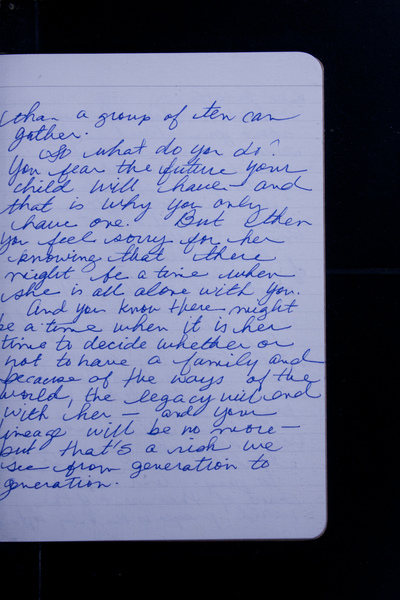 than a group of ten can
gather.
So what do you do?
You fear the future your
child will have - and
that is why you only
have one. But then
you feel sorry for her
knowing that there
might be a time when
she is all alone with you.
And you know there might
be a time when it is her
time to decide whether or
not to have a family and
because of the ways of the
world, the legacy will end
with her - and your
lineage will be no more -
but that's a risk we
see from generation to
generation.